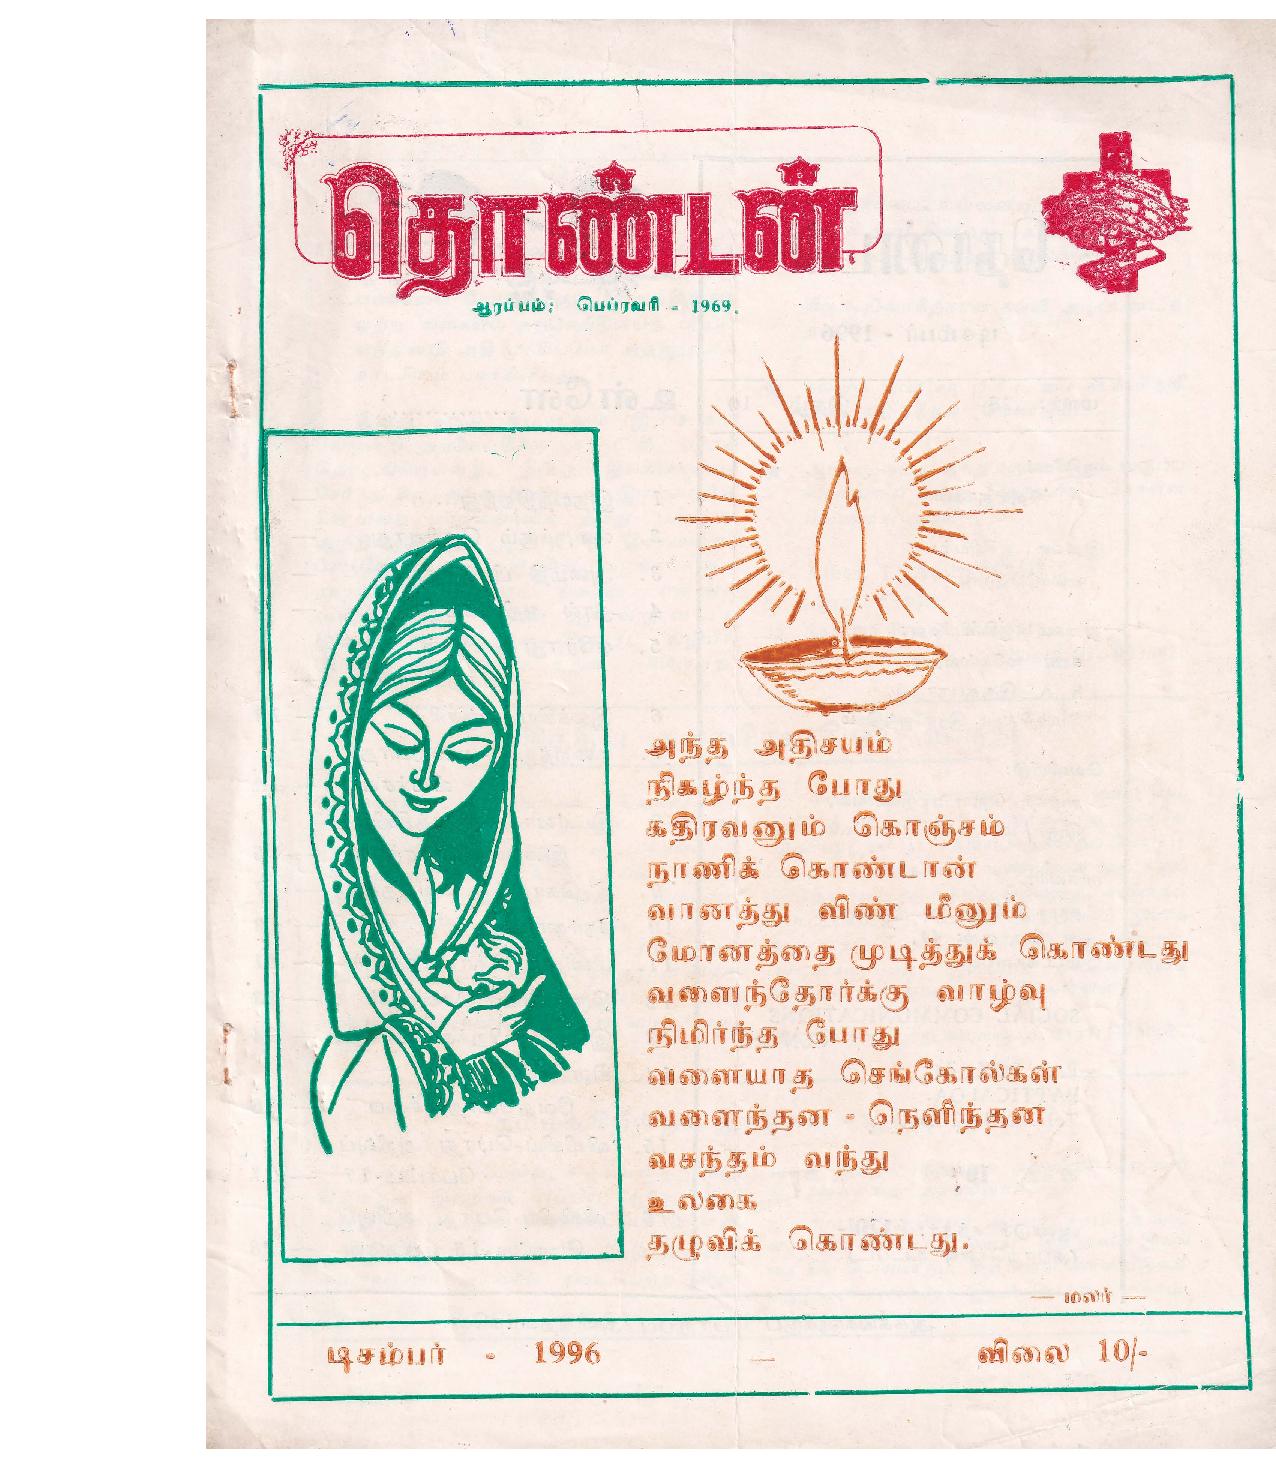 தொண்டன்
ஆரப்பம்; பெப்ரவரி - 1969.
அந்த அதிசயம்
நிகழ்ந்த போது
கதிரவனும் கொஞ்சம்
நாணிக் கொண்டான்
வானத்து விண் மீனும்
மோனத்தை முடித்துக் கொண்டது
வளைந்தோர்க்கு வாழ்வு
நிமிர்ந்த போது
வளையாத செங்கோல்கள்
வளைந்தன - நெளிந்தன
வசந்தம் வந்து
உலகை
தழுவிக் கொண்டது.
— மலர் —
டிசம்பர் - 1996 — விலை 10/-